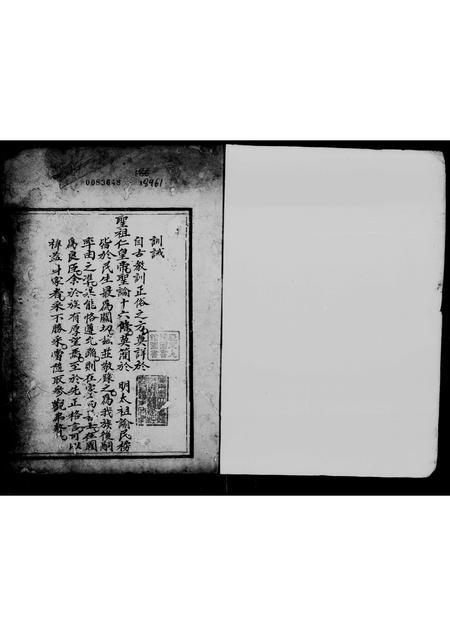 0083648
訓誡
自古教訓正俗之方莫詳於
聖祖仁皇帝聖諭十六條莫簡於 明太祖諭民榜
皆於民生最為關切茲並敬錄之為我族後嗣
率由之準能恪遵允蹈則在家為 在國
為良臣余於族有厚望焉至於先正格言可以
裨益身家者采不勝采當隨取參觀